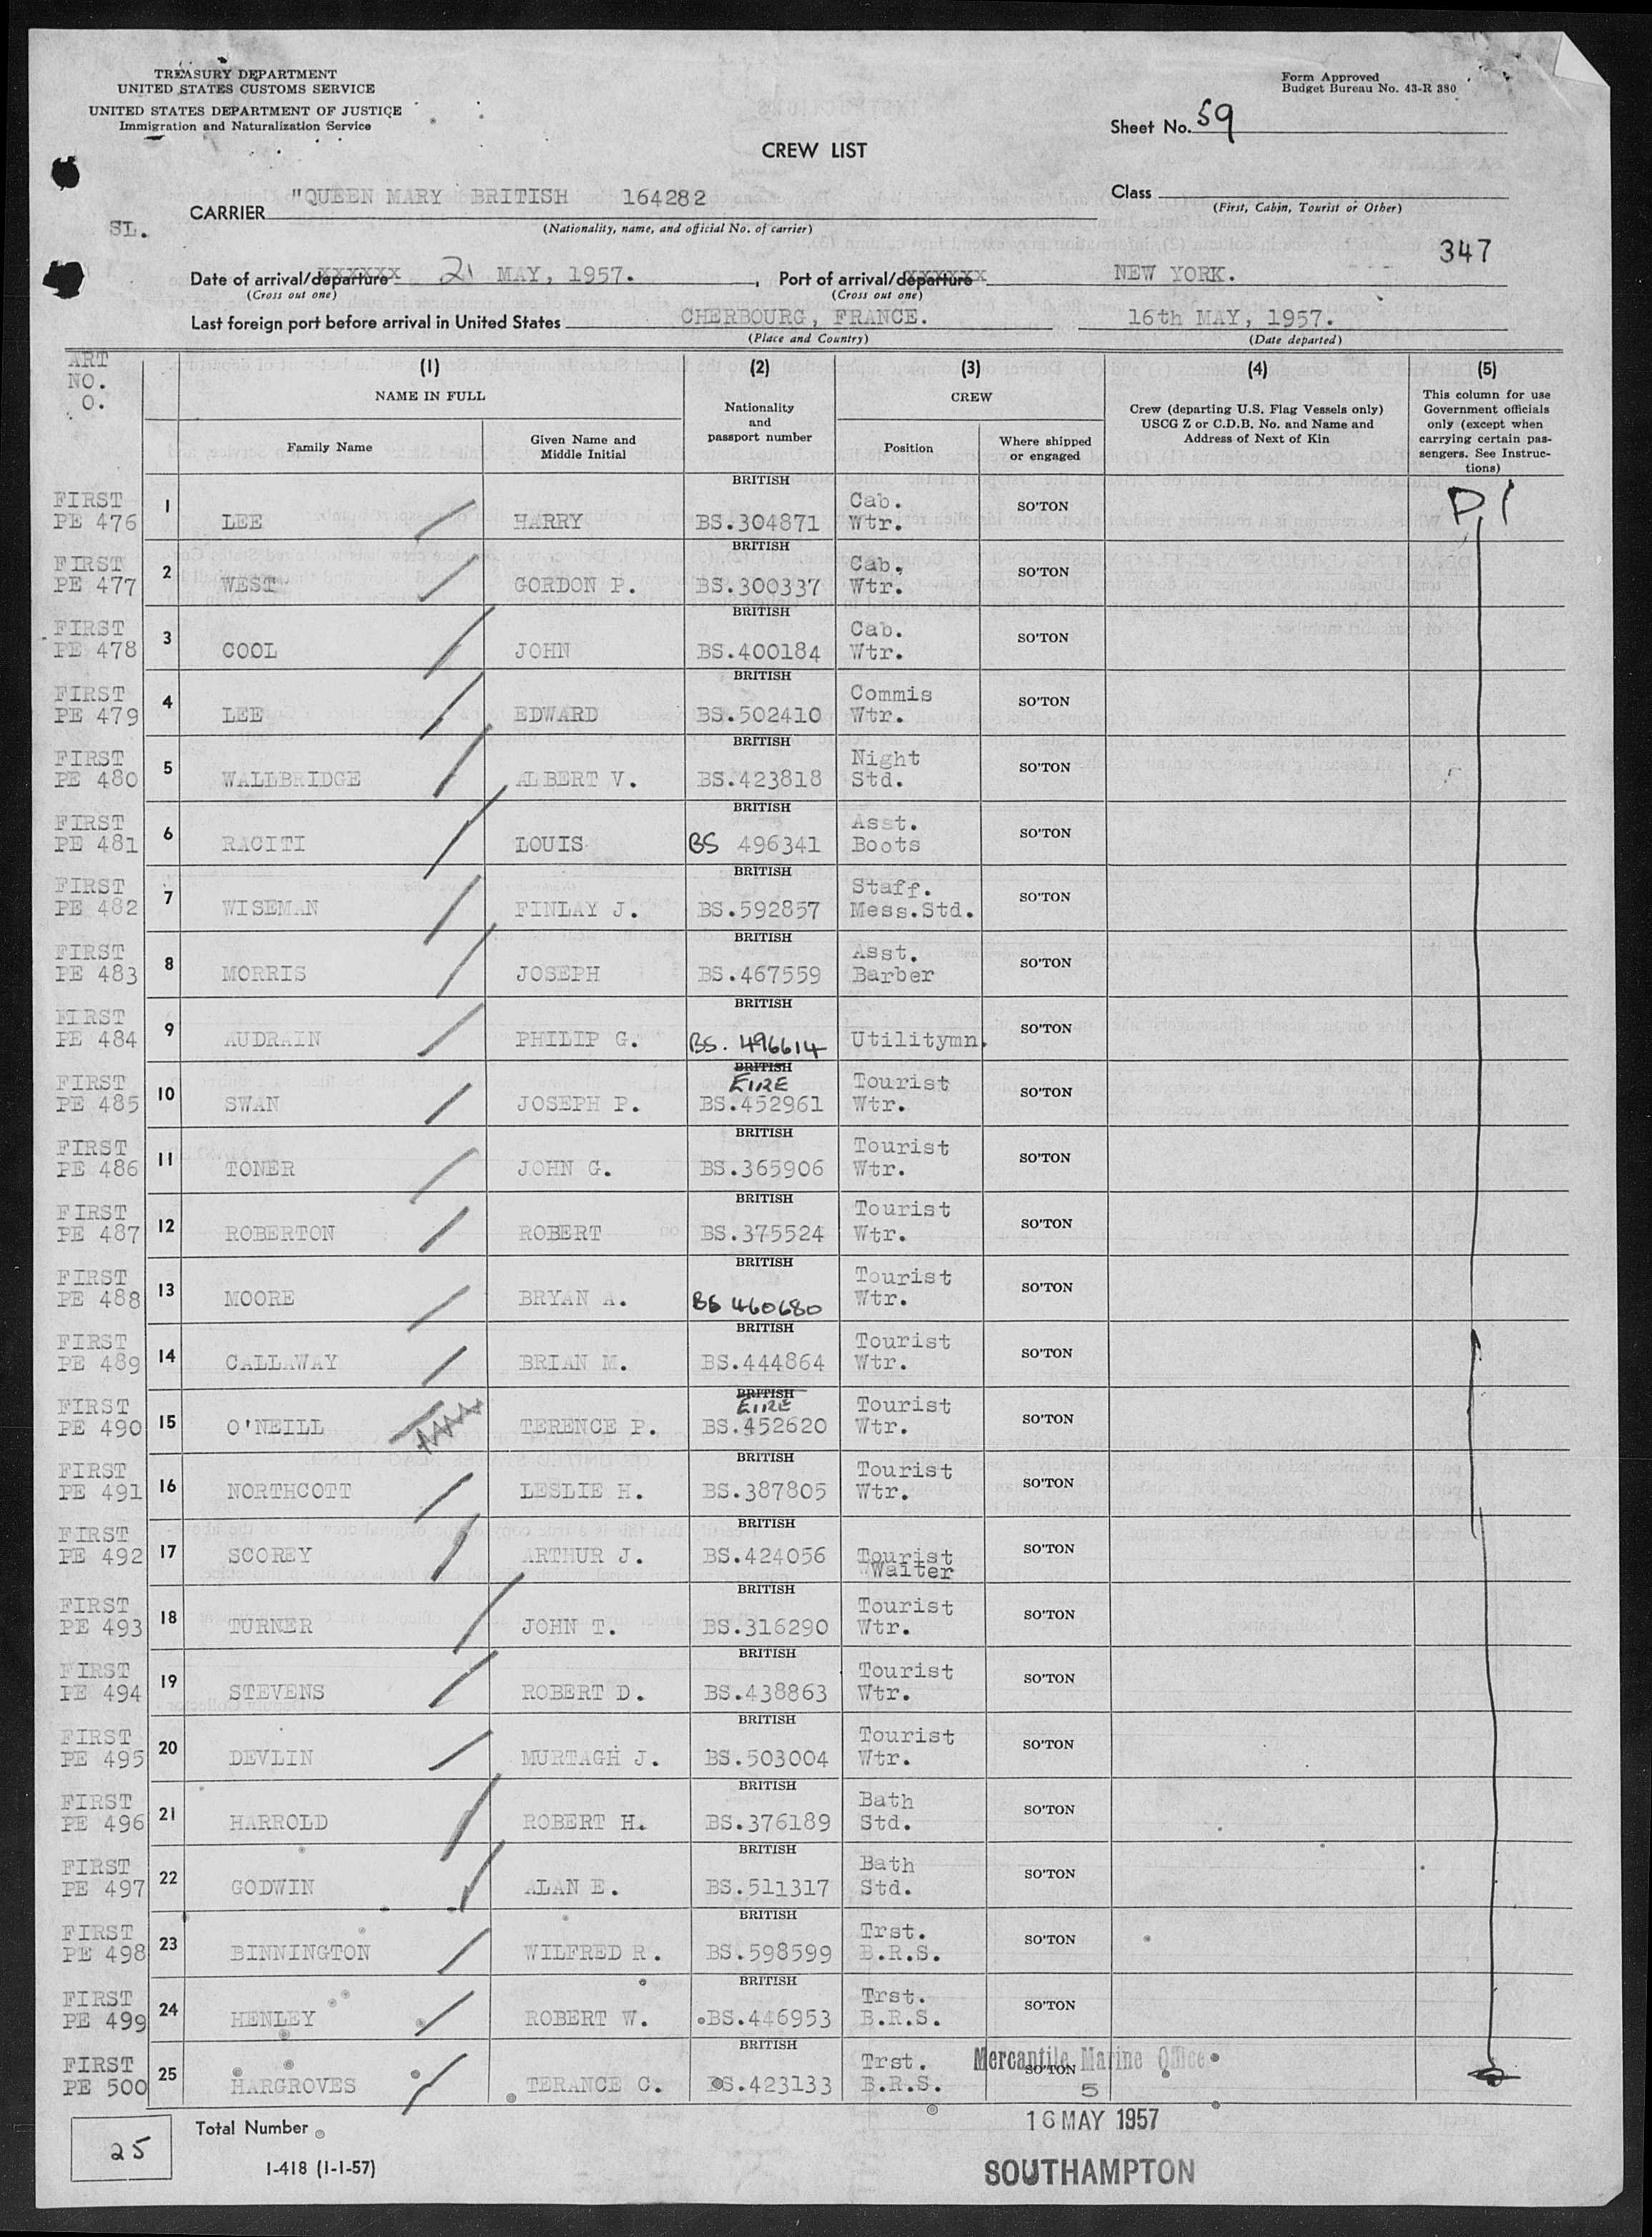 TREASURY DEPARTMENT
UNITED STATES CUSTOMS SERVICE
UNITED STATES DEPARTMENT OF JUSTICE
Immigration and Naturalization Service
Form Approved
Budget Bureau No. 43-R 380
Sheet No. 59
CREW LIST
CARRIER "QUEEN MARY BRITISH 164282
(Nationality, name, and official No. of carrier)
Class
(First, Cabin, Tourist or Other)
SL.
347
Date of arrival/departure 21 MAY, 1957. , Port of arrival/departure NEW YORK.
(Cross out one) (Cross out one)
Last foreign port before arrival in United States CHERBOURG, FRANCE. 16th MAY, 1957.
(Place and Country) (Date departed)
ART NO. O.
(1) (2) (3) (4) (5)
NAME IN FULL
Family Name
Given Name and Middle Initial
Nationality and passport number
CREW
Position
Where shipped or engaged
Crew (departing U.S. Flag Vessels only) USCG Z or C.D.B. No. and Name and Address of Next of Kin
This column for use Government officials only (except when carrying certain passengers. See Instructions)
FIRST PE 476 1 LEE HARRY BRITISH BS.304871 Cab. Wtr. SO'TON D,1
FIRST PE 477 2 WEST GORDON P. BRITISH BS.300337 Cab. Wtr. SO'TON
FIRST PE 478 3 COOL JOHN BRITISH BS.400184 Cab. Wtr. SO'TON
FIRST PE 479 4 LEE EDWARD BRITISH BS.502410 Commis Wtr. SO'TON
FIRST PE 480 5 WALLBRIDGE ALBERT V. BRITISH BS.423818 Night Std. SO'TON
FIRST PE 481 6 RACITI LOUIS BRITISH BS 496341 Asst. Boots SO'TON
FIRST PE 482 7 WISEMAN FINLAY J. BRITISH BS.592857 Staff. Mess.Std. SO'TON
FIRST PE 483 8 MORRIS JOSEPH BRITISH BS.467559 Asst. Barber SO'TON
FIRST PE 484 9 AUDRAIN PHILIP G. BRITISH BS. 496614 Utilitymn. SO'TON
FIRST PE 485 10 SWAN JOSEPH P. BRITISH EIRE BS.452961 Tourist Wtr. SO'TON
FIRST PE 486 11 TONER JOHN G. BRITISH BS.365906 Tourist Wtr. SO'TON
FIRST PE 487 12 ROBERTON ROBERT BRITISH BS.375524 Tourist Wtr. SO'TON
FIRST PE 488 13 MOORE BRYAN A. BRITISH BS 460680 Tourist Wtr. SO'TON
FIRST PE 489 14 CALLAWAY BRIAN M. BRITISH BS.444864 Tourist Wtr. SO'TON
FIRST PE 490 15 O'NEILL TERENCE P. BRITISH EIRE BS.452620 Tourist Wtr. SO'TON
FIRST PE 491 16 NORTHCOTT LESLIE H. BRITISH BS.387805 Tourist Wtr. SO'TON
FIRST PE 492 17 SCOREY ARTHUR J. BRITISH BS.424056 Tourist Waiter SO'TON
FIRST PE 493 18 TURNER JOHN T. BRITISH BS.316290 Tourist Wtr. SO'TON
FIRST PE 494 19 STEVENS ROBERT D. BRITISH BS.438863 Tourist Wtr. SO'TON
FIRST PE 495 20 DEVLIN MURTAGH J. BRITISH BS.503004 Tourist Wtr. SO'TON
FIRST PE 496 21 HARROLD ROBERT H. BRITISH BS.376189 Bath Std. SO'TON
FIRST PE 497 22 GODWIN ALAN E. BRITISH BS.511317 Bath Std. SO'TON
FIRST PE 498 23 BINNINGTON WILFRED R. BRITISH BS.598599 Trst. B.R.S. SO'TON
FIRST PE 499 24 HENLEY ROBERT W. BRITISH BS.446953 Trst. B.R.S. SO'TON
FIRST PE 500 25 HARGROVES TERANCE C. BRITISH BS.423133 Trst. B.R.S. SO'TON
Mercantile Marine Office
5
16 MAY 1957
SOUTHAMPTON
25 Total Number
I-418 (1-1-57)